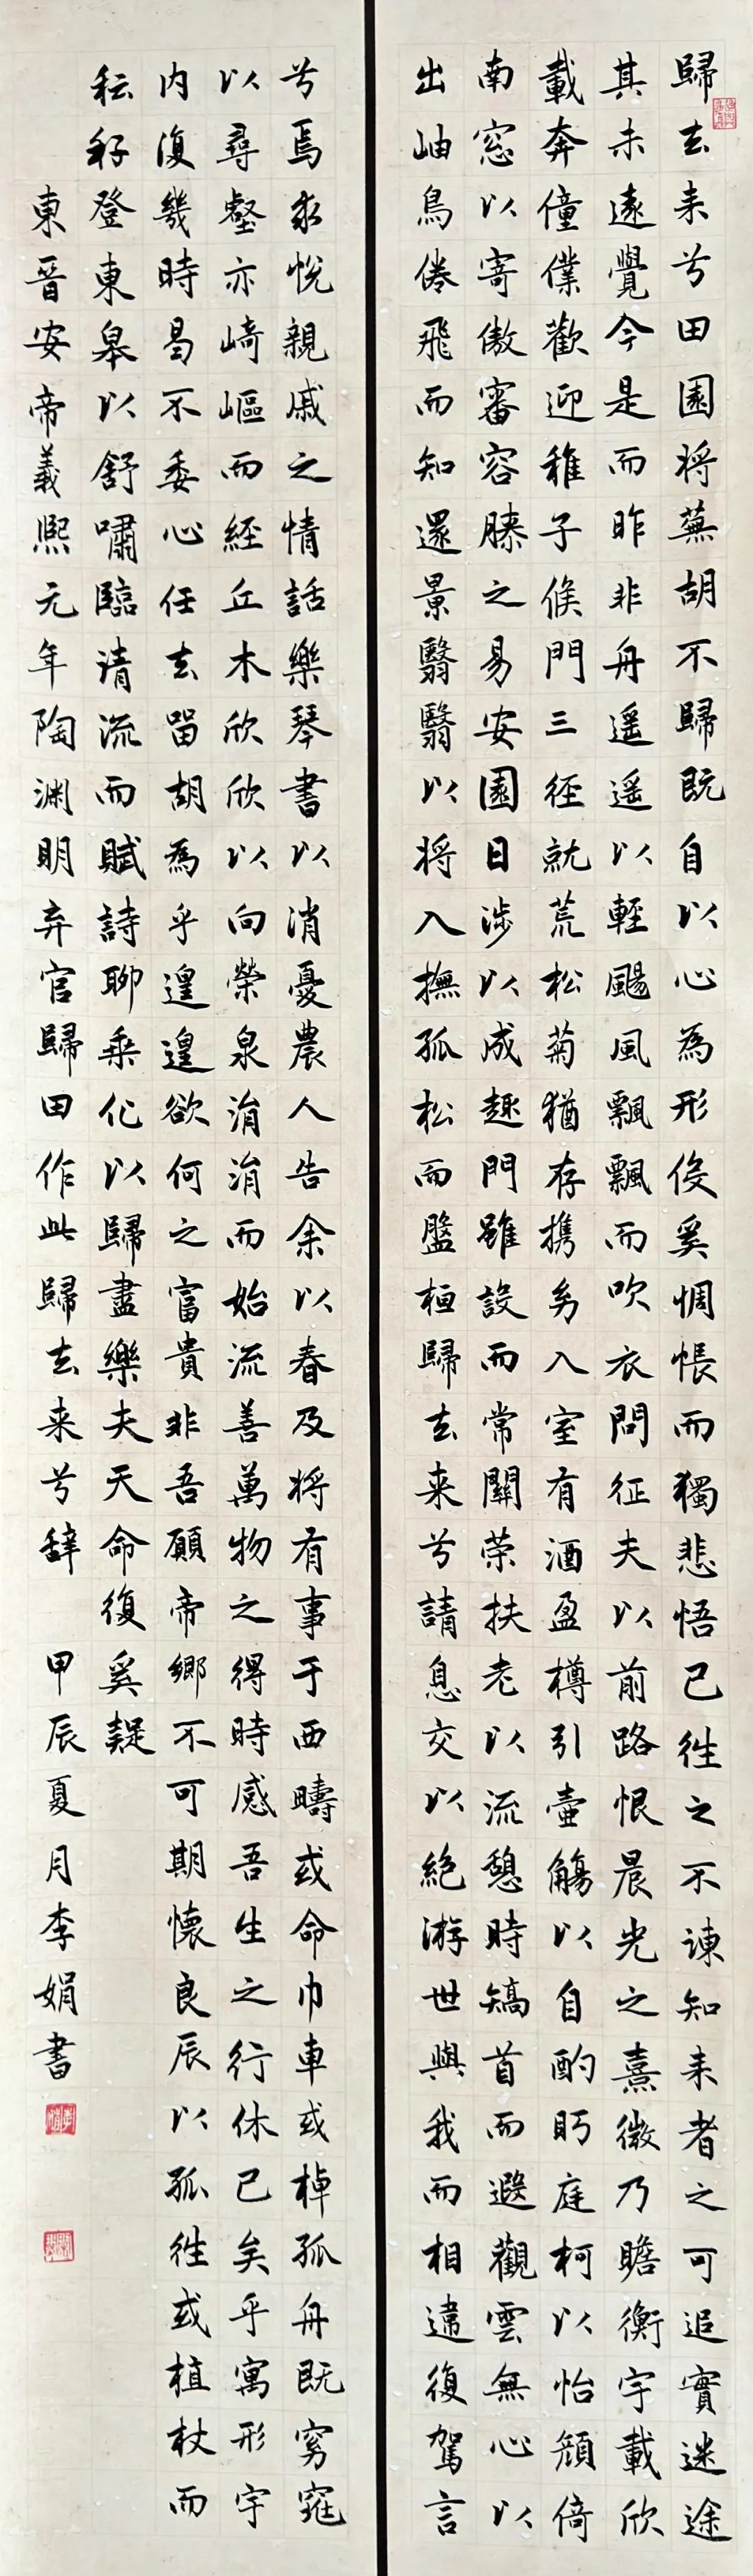 歸去来兮田園将蕪胡不歸既自以心為形役奚惆悵而獨悲悟已往之不諫知来者之可追實迷途
其未遠覺今是而昨非舟遥遥以輕颺風飄飄而吹衣問征夫以前路恨晨光之熹微乃瞻衡宇載欣
載奔僮僕歡迎稚子候門三徑就荒松菊猶存携幼入室有酒盈樽引壺觴以自酌眄庭柯以怡顔倚
南窓以寄傲審容膝之易安園日涉以成趣門雖設而常關策扶老以流憩時矯首而遐觀雲無心以
出岫鳥倦飛而知還景翳翳以将入撫孤松而盤桓歸去来兮請息交以絶游世與我而相違復駕言
兮焉求悦親戚之情話樂琴書以消憂農人告余以春及将有事于西疇或命巾車或棹孤舟既窈窕
以尋壑亦崎嶇而經丘木欣欣以向榮泉涓涓而始流善萬物之得時感吾生之行休已矣乎寓形宇
内復幾時曷不委心任去留胡為乎遑遑欲何之富貴非吾願帝鄉不可期懷良辰以孤往或植杖而
耘耔登東皋以舒嘯臨清流而賦詩聊乘化以歸盡樂夫天命復奚疑
東晋安帝義熙元年陶渊明弃官歸田作此歸去来兮辞 甲辰夏月李娟書